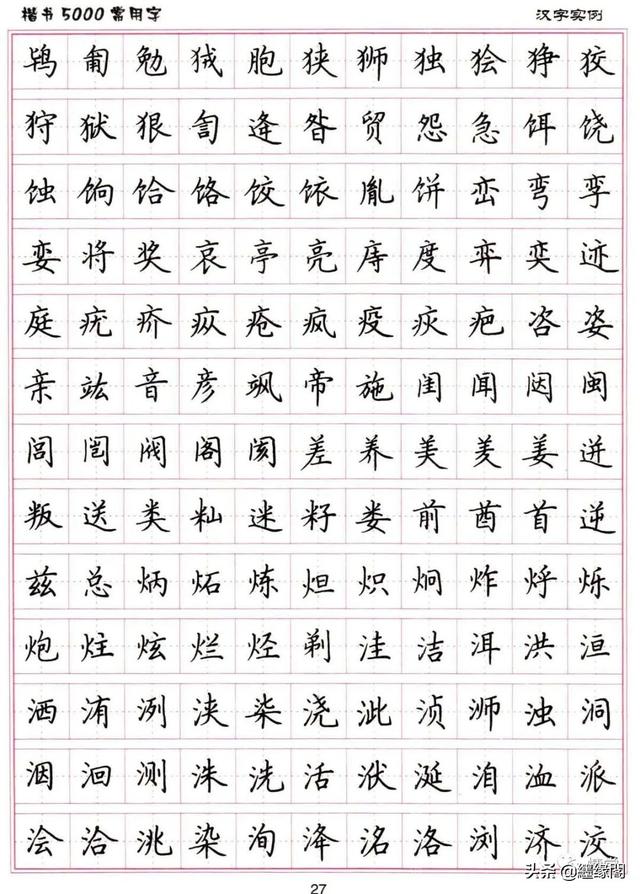 楷书5000常用字 汉字实例
鸨匍勉狨胞狭狮独狯狰狡
狩狱狠訇逄昝贸怨急饵饶
蚀饷饸饹饺饻胤饼峦弯孪
娈将奖哀亭亮庤度弈奕迹
庭疣疥疭疮疯疫疢疤咨姿
亲竑音彦飒帝施闺闻闼闽
闾闿阀阁阂差养美羑姜迸
叛送类籼迷籽娄前酋首逆
兹总炳炻炼炟炽炯炸烀烁
炮炷炫烂烃剃洼洁洱洪洹
洒洧洌浃柒浇泚浈浉浊洞
洇洄测洙洗活洑涎洎洫派
浍洽洮染洵洚洺洛浏济洨
27
头条 @继缘阁